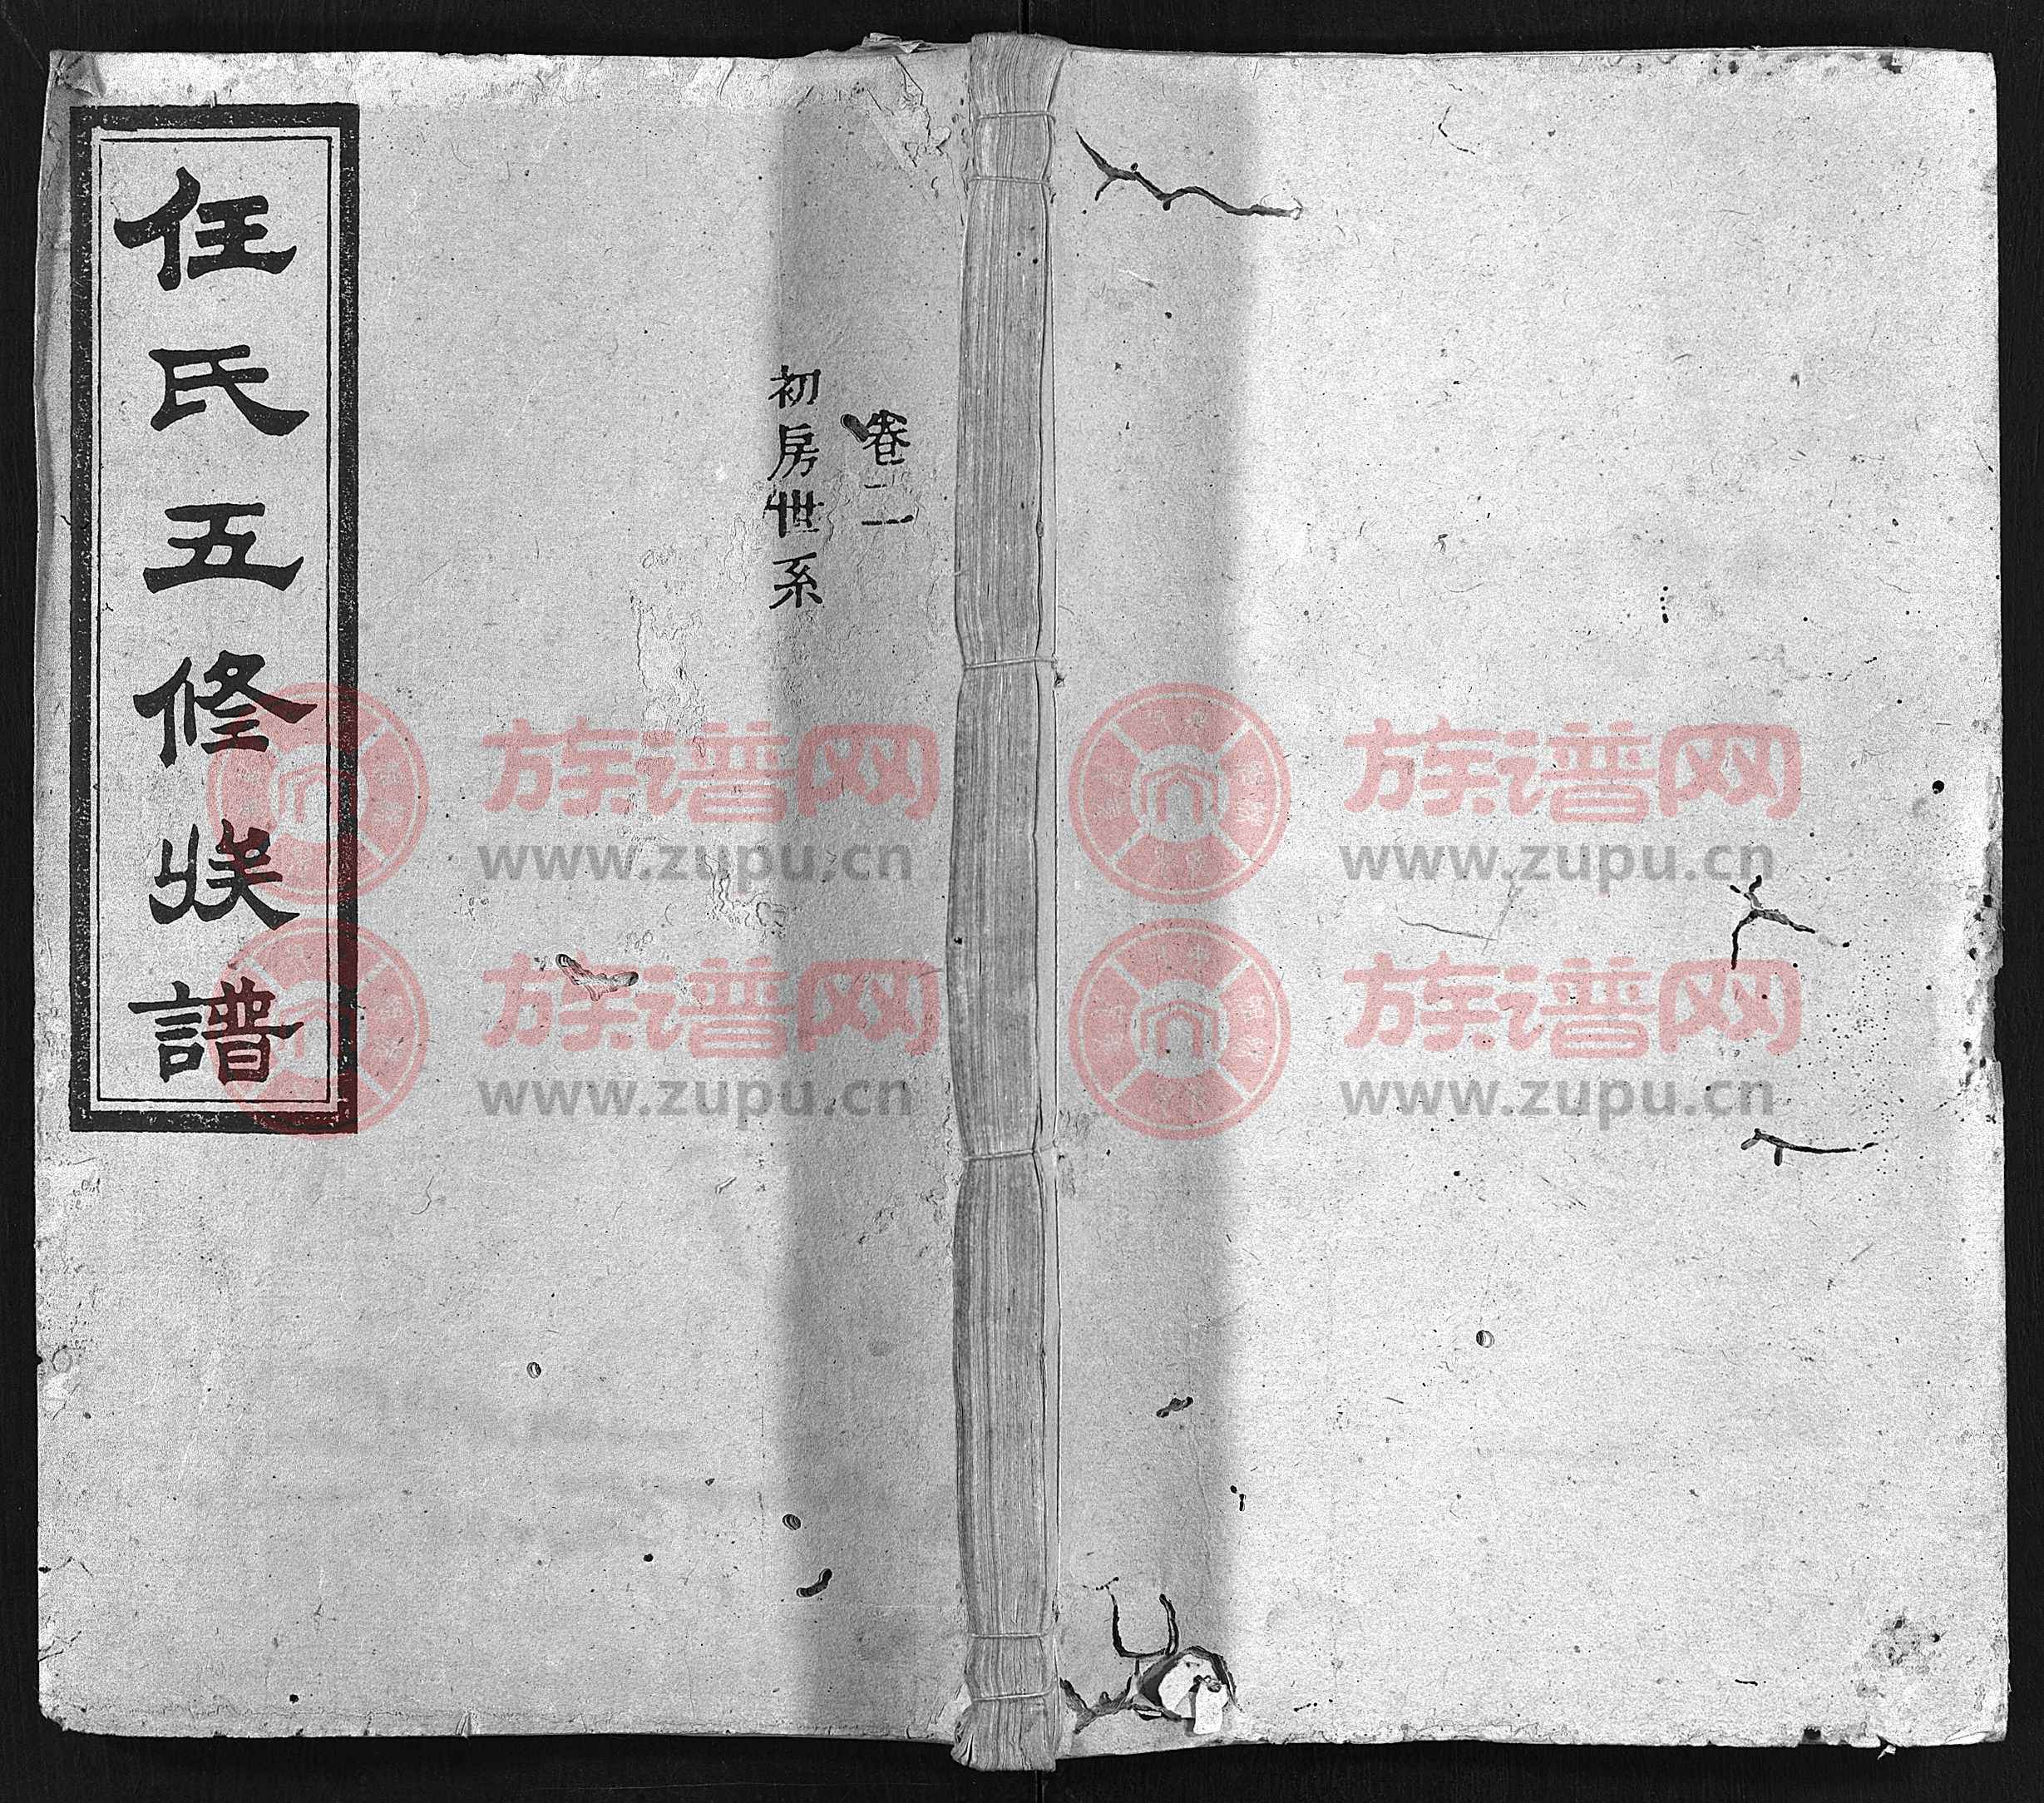 卷二
初房世系
任氏五修族譜
族谱网
www.zupu.cn
族谱网
www.zupu.cn
族谱网
www.zupu.cn
族谱网
www.zupu.cn